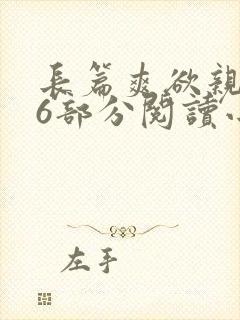 長篇爽欲親
6部分閱讀小
左手